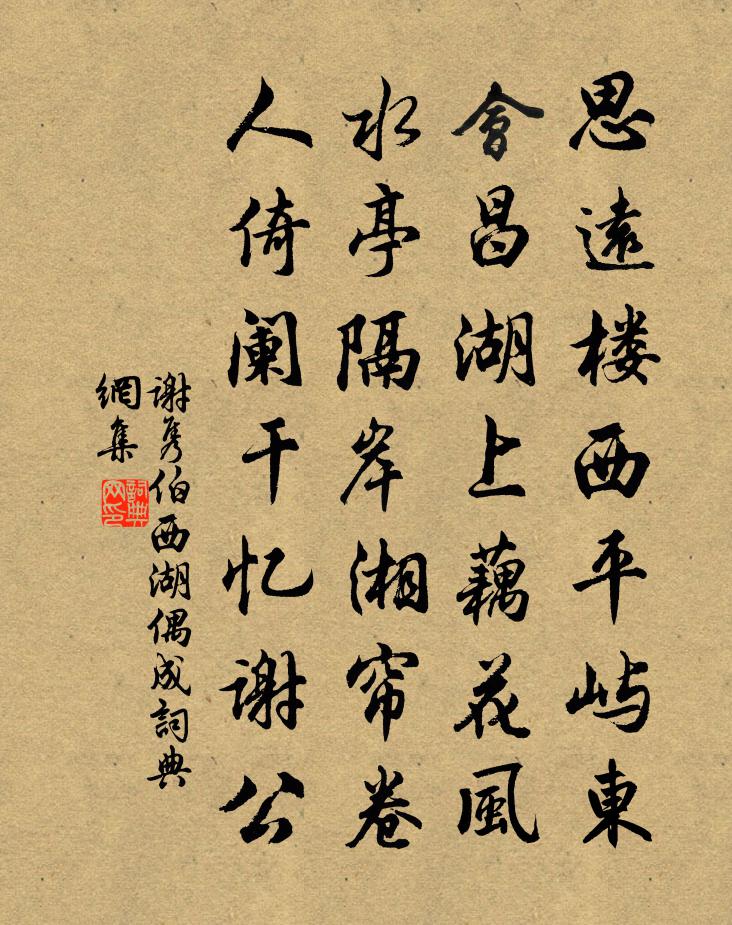 思遠楼西平屿東
會昌湖上藕花風
水亭隔岸湘帘卷
人倚阑干忆谢公
谢隽伯西湖偶成詞典
網集
詞典
网印